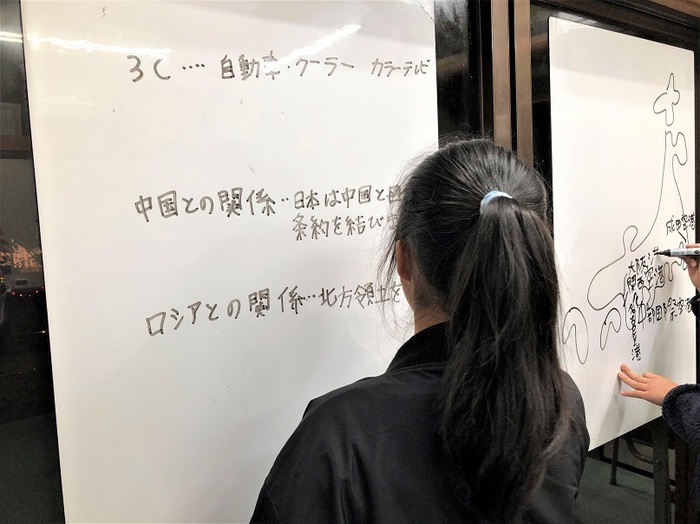 3C‥‥自動車・クーラー カラーテレビ
中国との関係‥日本は中国と
条約を結び
ロシアとの関係…北方領土を
成田空港
関西空港